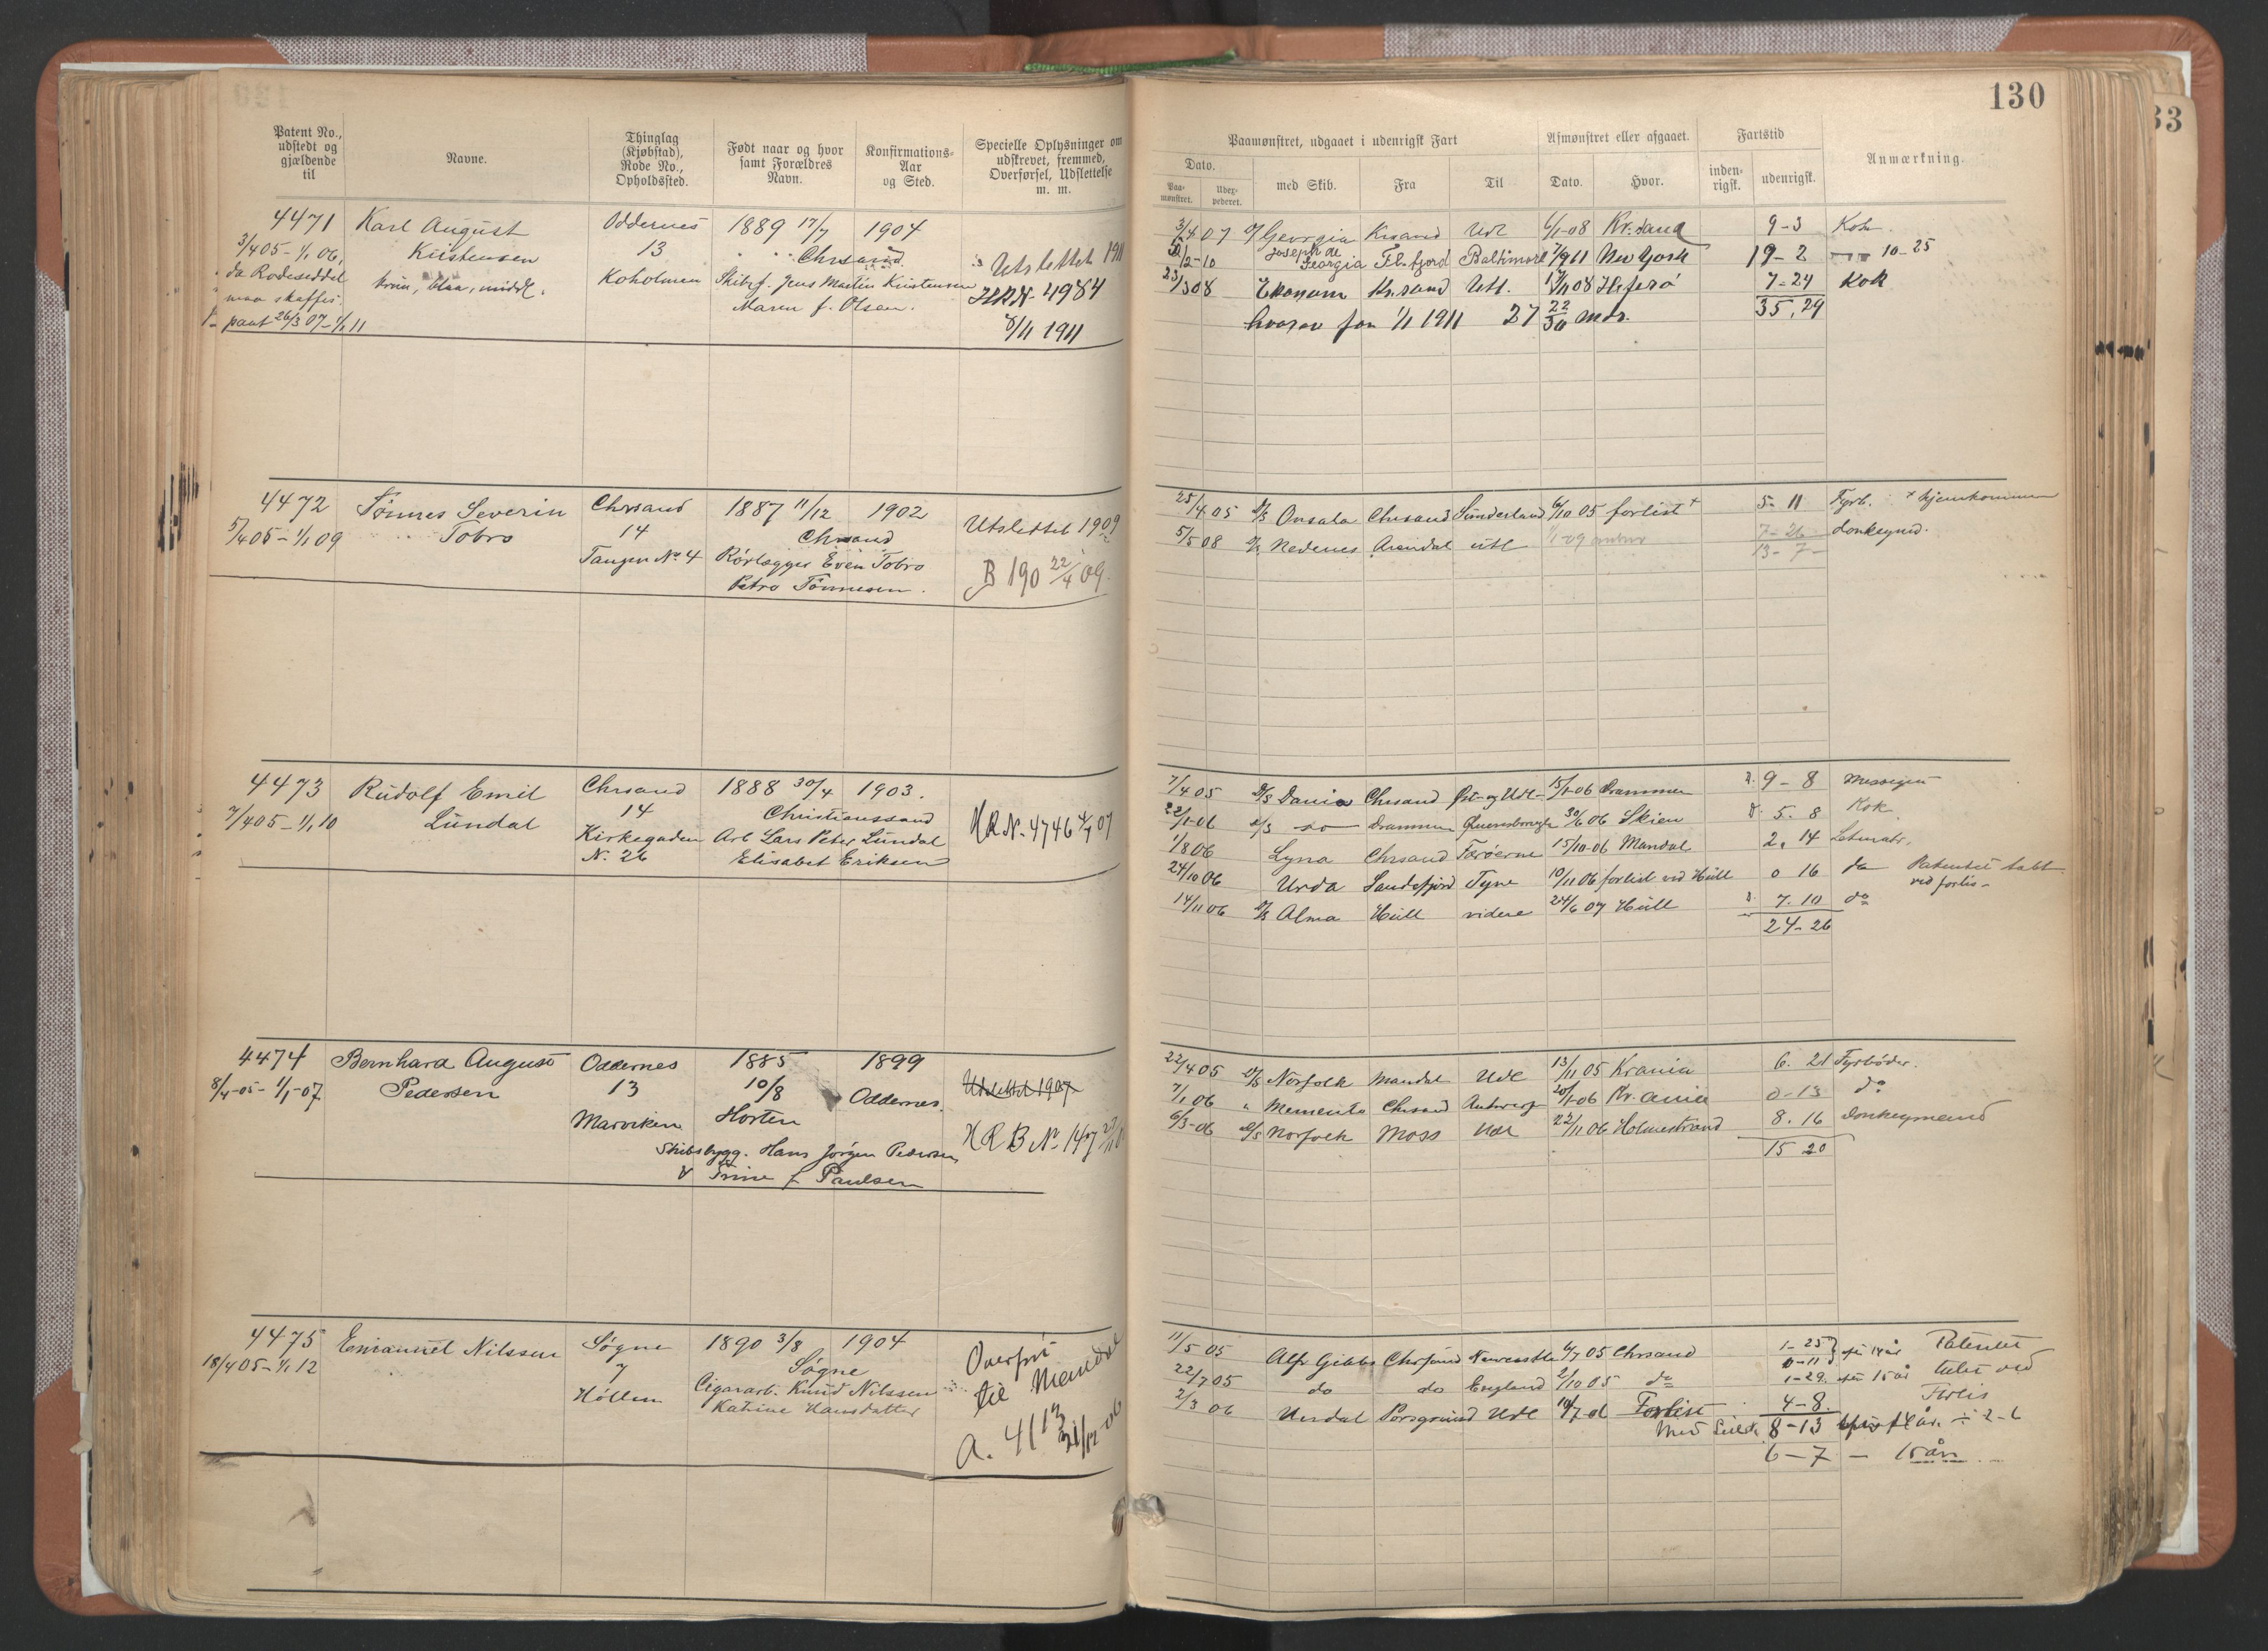 130
Patent No., udstedt og gjældende til
Navne.
Thinglag (Kjøbstad), Rode No., Opholdssted.
Født naar og hvor samt Forældres Navn.
Konfirmations-Aar og Sted.
Specielle Oplysninger om udskrevet, fremmed, Overførsel, Udslettelse m. m.
Paamønstret, udgaaet i udenrigsk Fart
Afmønstret eller afgaaet.
Fartstid
Anmærkning.
Dato.
Paamønstret.
med Skib.
Fra
Til
Dato.
Hvor.
indenrigsk.
udenrigsk.
4471 Karl August Oddernes 1889 17/7 1904
3/4 05 - 1/1 06, Kristensen 13 Chrsand Utslettet 1911
da Rodeseddel brun, blaa, middl. Koholmen Skibsf. Jens Martin Kristensen HRN. 4984
maa skaffes. Maren f. Olsen. 8/11 1911
pant 26/3 07 - 1/1 11
3/4 07 Georgia Krsand Udl 6/1-08 Kr.sand 9-3 Kok
Joseph de Georgia Fl.fjord Baltimore 7/9 11 New York 19-2 10-25
23/1308 Ekonom Kr.sand Utl. 08 Hesferö 7-24 Kok
hvorav før 1/1 1911 27 22/30 mdr. 35,29
4472 Tönnes Severin Chrsand 1887 11/12 1902 Utslettet 1909
5/4 05 - 1/1 09 Tobro 14 Chrsand
Tangen No 4 Rörlægger Even Tobro B 190 22/4 09.
Petra Tönnesen.
25/4 05 D/S Onsala Chrsand Sunderland 6/10 05 forlist + 5-11 Fyrb. + hjemkommen
5/5 08 D/S Nedenes Arendal utl 7-26 donkeymd.
13-7-
4473 Rudolf Emil Chrsand 1888 30/4 1903.
7/4 05 - 1/1 10 Lundal 14 Christianssand
Kirkegaden Arb Lars Peter Lundal HRN. 4746 4/7 07
N. 26 Elisabet Eriksen
7/4 05 D/S Dania Chrsand Øst- og Udl- 15/1-06 Drammen 9-8 Messegut
22/1-06 D/S do Drammen 30/6 06 Skien 5.8 Kok
1/8 06 Lyna Chrsand Færöerne 15/10-06 Mandal 2.14 Letmatr.
24/10 06 Urda Sandefjord Tyne 10/11 06 forlist ved Hull 0 16 do Patentet tabt
ved forlis-
14/11 06 D/S Alma Hull videre 24/6 07 Hull 7.10 do
24-26
4474 Bernhard August Oddernes 1885 1899
8/4-05 - 1/1-07 Pedersen 13 10/8 Oddernes. Utslettet 1907
Marviken Horten HRB No 147
Skibsbygg. Hans Jörgen Pedersen
& Trine f. Paulsen
22/4 05 D/S Norfolk Mandal Udl 13/11 05 Krania 6.21 Fyrbøder.
7/1 06 " Memento Chrsand Antwerp 20/1-06 Kr.ania 0-13 do
6/3-06 D/S Norfolk Moss Udl 22/11 06 Holmestrand 8.16 Donkeymand
15 20
4475 Emanuel Nilssen Søgne 1890 3/8 1904 Overfört
18/4 05 - 1/1 12 7 Søgne til Mandal
Höllen Cigararb. Knud Nilssen A. 4113
Katrine Hansdatter 31/12-06
11/5 05 Alf Gibbs Chrsand Newcastle 6/7 05 Chrsand 1-25 før 14 år Patentet
0-11
22/7 05 do do England 2/10 05 do 1-29. før 15 år tabt ved
2/3 06 Urdal Porsgrund Udl 10/7-06 Forlist 4-8. Forlis
8-13 ÷ 2-6
6-7 - 15 år